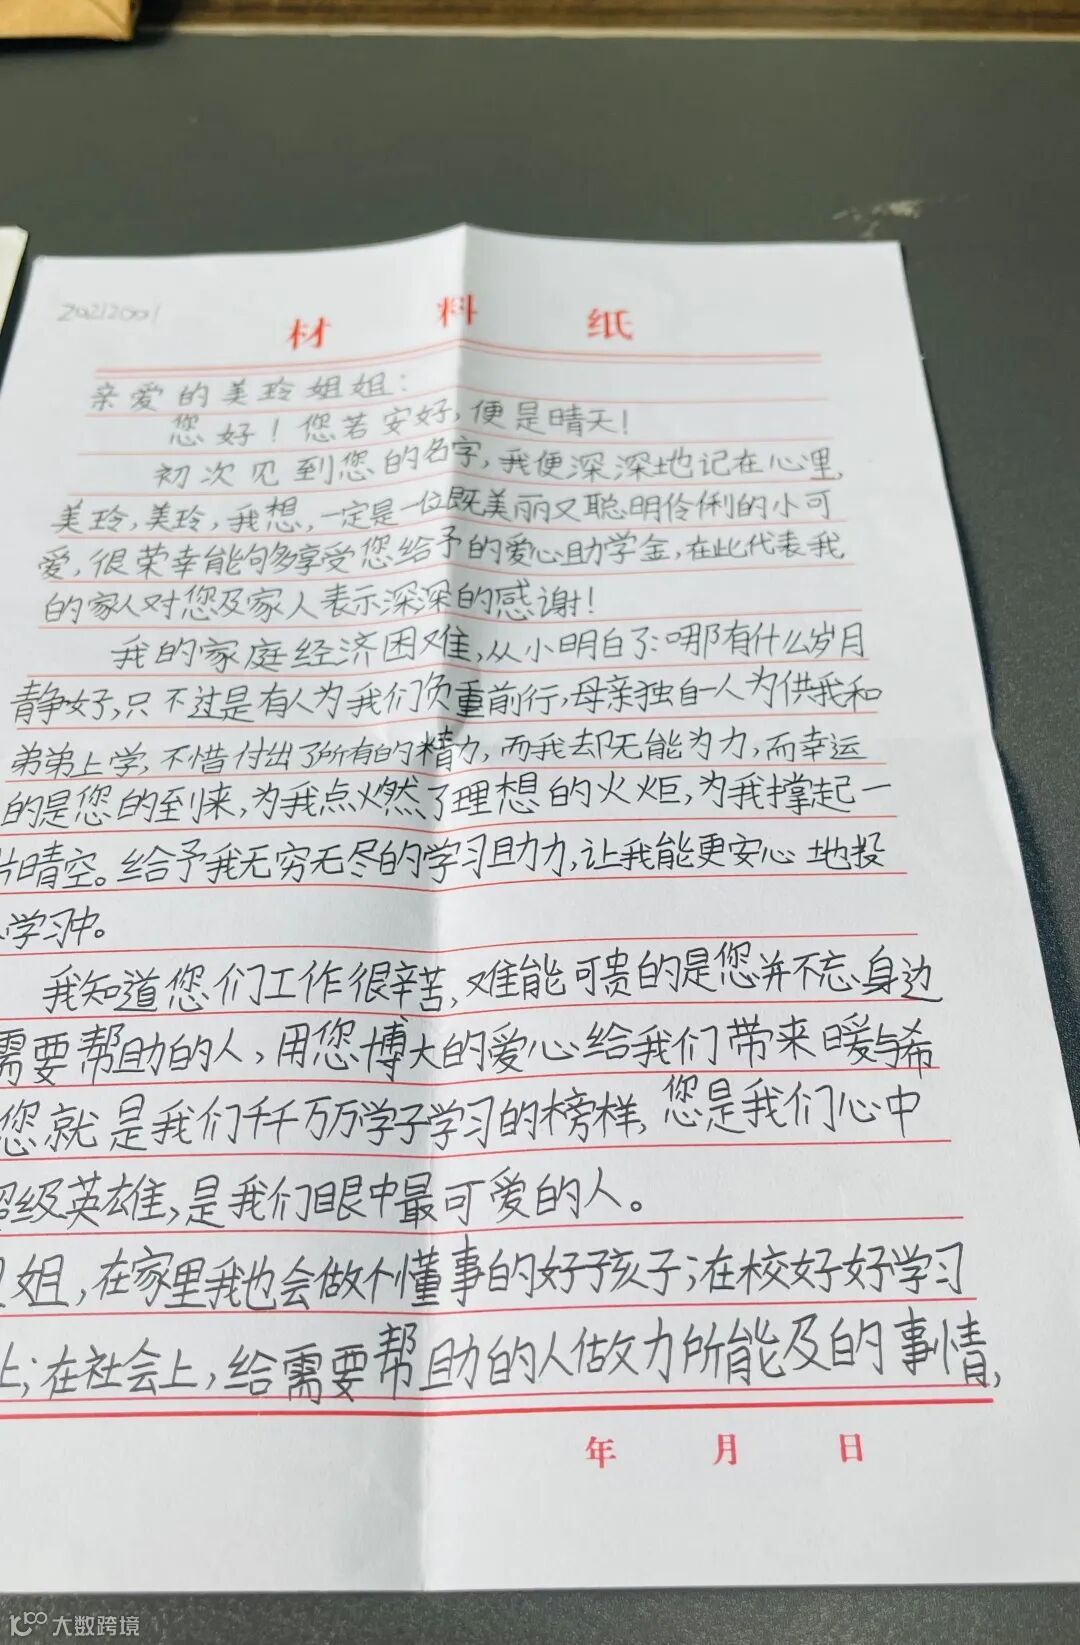 20212001
材料纸
亲爱的美玲姐姐：
您好！您若安好，便是晴天！
初次见到您的名字，我便深深地记在心里，
美玲，美玲，我想，一定是一位既美丽又聪明伶俐的小可
爱，很荣幸能够享受您给予的爱心助学金，在此代表我
的家人对您及家人表示深深的感谢！
我的家庭经济困难，从小明白了：哪有什么岁月
静好，只不过是有人为我们负重前行，母亲独自一人为供我和
弟弟上学，不惜付出了所有的精力，而我却无能为力，而幸运
的是您的到来，为我点燃了理想的火炬，为我撑起一
片晴空。给予我无穷无尽的学习助力，让我能更安心地投
学习中。
我知道您们工作很辛苦，难能可贵的是您并不忘身边
需要帮助的人，用您博大的爱心给我们带来暖与希
您就是我们千千万万学子学习的榜样，您是我们心中
超级英雄，是我们眼中最可爱的人。
姐，在家里我也会做个懂事的好孩子；在校好好学习
上；在社会上，给需要帮助的人做力所能及的事情，
年 月 日
大数跨境